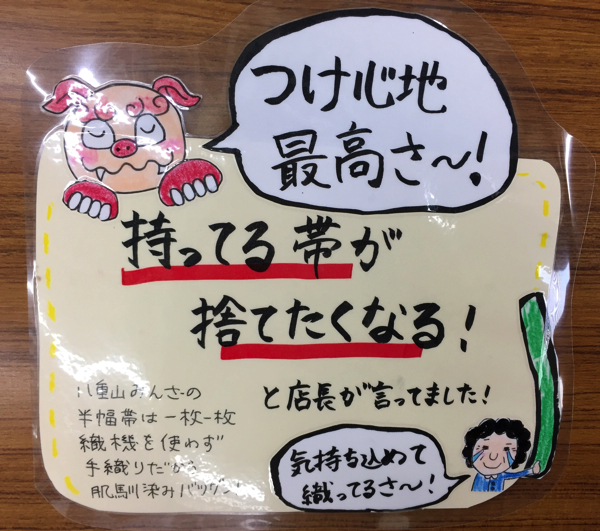 つけ心地
最高さ〜!
持ってる帯が
捨てたくなる!
と店長が言ってました!
八重山みんさーの
半幅帯は一枚一枚
織機を使わず
手織りだから
肌馴染みバツグン!
気持ち込めて
織ってるさ〜!